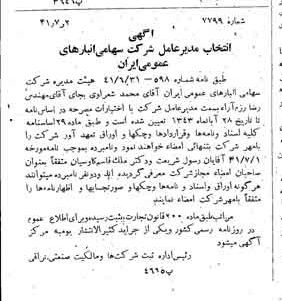 شماره ۷۷۹۹
۴۱/۷/۲
آگهی
انتخاب مدیرعامل شرکت سهامی انبارهای
عمومی ایران
طبق نامه شماره ۵۹۸-۴۱/۶/۳۱ هیئت مدیره شرکت
سهامی انبارهای عمومی ایران آقای محمد شعراوی بجای آقای مهندس
رضا رزم‌آراء بسمت مدیرعامل شرکت با اختیارات مصرحه در اساسنامه
تا تاریخ ۲۸ آبانماه ۱۳۴۳ تعیین شده است و طبق ماده ۲۹ اساسنامه
کلیه اسناد ونامه‌ها وقراردادها وچکها و اوراق تعهد آور شرکت را
بامهر شرکت بتنهائی امضاء خواهند نمود ونامبرده بموجب نامه مورخه
آقایان رسول شریعت و دکتر ملک قاسم کاوسیان متفقاً بعنوان
صاحبان امضاء مجاز شرکت معرفی گردیده‌اند ودونفر نامبرده میتوانند
هرگونه اوراق واسناد و نامه‌ها وچکها و صورتحسابها و اظهارنامه‌ها را
متفقاً بامهر شرکت امضاء نمایند
مراتب طبق ماده ۲۰۰ قانون تجارت بثبت رسیده وبرای اطلاع عموم
در روزنامه رسمی کشور ویکی از جراید کثیرالانتشار یومیه مرکز
آگهی میشود
رئیس اداره ثبت شرکت‌ها ومالکیت صنعتی-نراقی
پ ۴۶۶۵